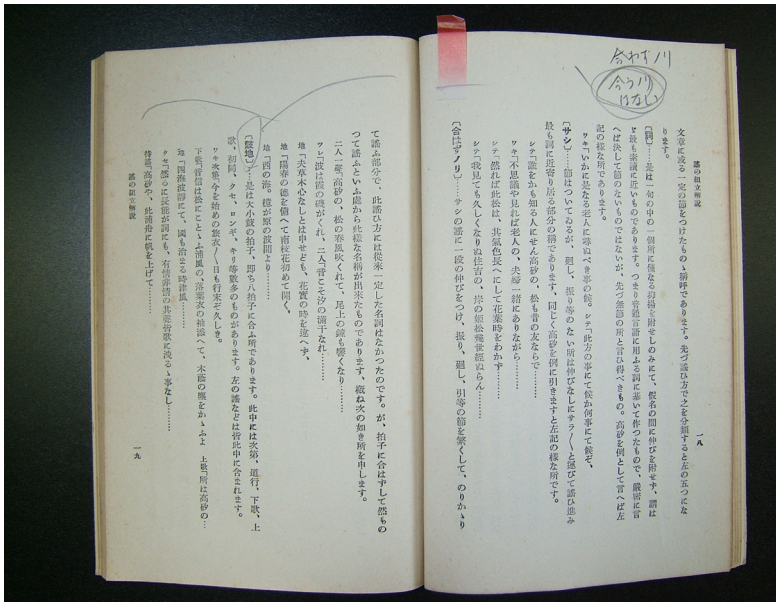 合わず川
合う川
はない
謡の組立解説
一八
文章に或る一定の節をつけたものゝ稱呼であります。先づ謡ひ方で之を分類すると左の五つにな
ります。
〔詞〕……是は一句の中の一個所に僅なる抑揚を附せしのみにて、假名の間に伸びを附せず、謂は
ど最も素讀に近いものであります。つまり普通言語に用ふる詞に基いて作つたもので、嚴密に言
へば決して節のないものではないが、先づ無節の所と言ひ得べきもの。高砂を例として言へば左
記の樣な所であります。
ワキ「いかに是なる老人に尋ぬべき事の候。シテ「此方の事にて候か何事にて候ぞ、
〔サシ〕……節はついてゐるが、廻し、振り等のない所は伸びなしにサラ〱と運びて謡ひ進み
最も詞に近寄り居る部分の稱であります、同じく高砂を例に引きますと左記の樣な所です。
シテ「誰をかも知る人にせん高砂の、松も昔の友ならで………
ワキ「不思議や見れば老人の、夫婦一緒にありながら………
シテ「然れば此松は、其氣色長へにして花葉時をわかず………
シテ「我見ても久しくなりぬ住吉の、岸の姫松幾世經ぬらん………
〔合はずノリ〕……サシの謡に一段の伸びをつけ、振り、廻し、引等の節を繁くして、のりかゝり
て謡ふ部分で、此謡ひ方には從來一定した名詞はなかつたのです。が、拍子に合はずして然もの
つて謡ふといふ處から此樣な名稱が出來たものであります、概ね次の如き所を申します。
二人一聲「高砂の、松の春風吹くれて、尾上の鐘も響くなり………
ツレ「波は霞の磯がくれ、二人「音こそ汐の滿干なれ………
地「夫草木心なしとは申せども、花實の時を違へず、
地「陽春の德を備へて南枝花初めて開く、
地「西の海。檍が原の波間より………
〔鼓地〕…是は大小鼓の拍子、即ち八拍子に合ふ所であります。此中には次第、道行、下歌、上
歌、初同、クセ、ロンギ、キリ等數多のものがあります。左の謡などは皆此中に含まれます。
ワキ次第「今を始めの旅衣〱日も行末ぞ久しき。
下歌「音信は松にことゝふ浦風の、落葉衣の袖添へて、木蔭の塵をかゝふよ 上歌「所は高砂の…
地「四海波靜にて、國も治まる時津風………
クセ「然るに長能が詞にも、有情非情の其聲皆歌に洩るゝ事なし………
待謡「高砂や、此浦舟に帆を上げて………
謡の組立解説
一九